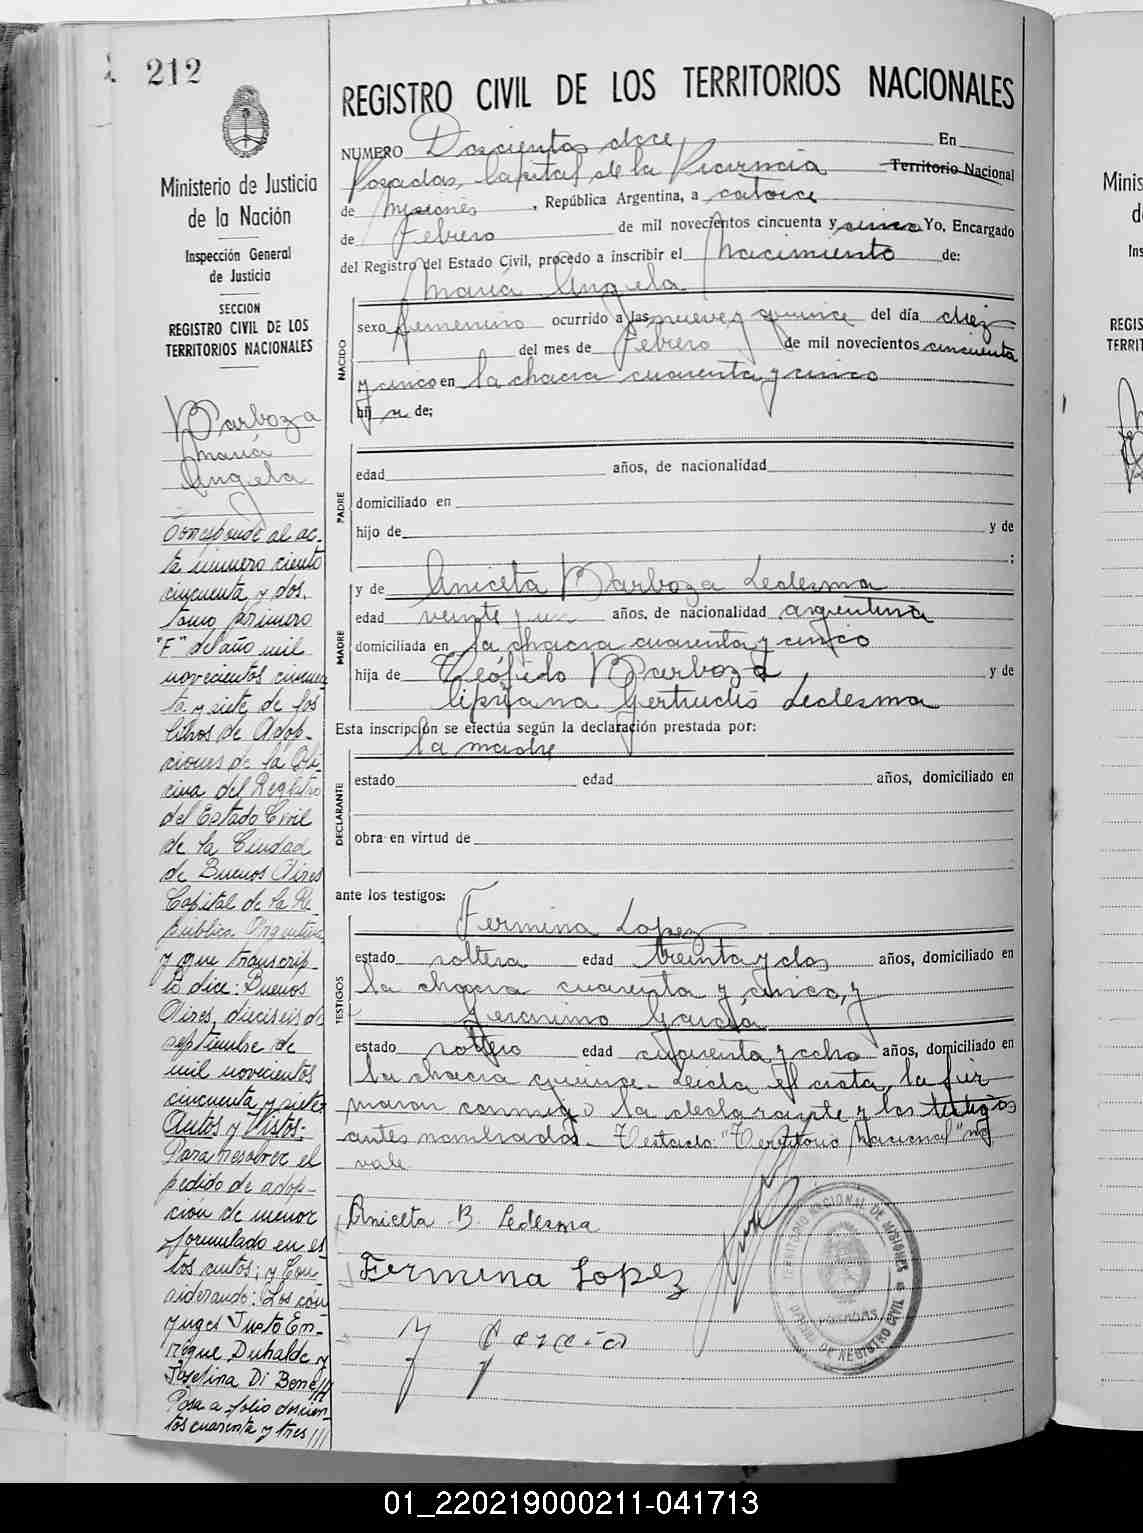 212
Ministerio de Justicia
de la Nación
Inspección General
de Justicia
SECCION
REGISTRO CIVIL DE LOS
TERRITORIOS NACIONALES
Barboza
María
Angela
Corresponde al ac-
ta número ciento
cincuenta y dos.
tomo primero
"E" del año mil
novecientos cincuen
ta y siete de los
libros de Adop-
ciones de la Ofi-
cina del Registro
del Estado Civil
de la Ciudad
de Buenos Aires
Capital de la Re-
pública Argentina
y que transcrip-
to dice: Buenos
Aires, dieciseis de
septiembre de
mil novecientos
cincuenta y siete
Autos y Vistos:
Para resolver el
pedido de adop-
ción de menor
formulado en es-
tos autos; y Con
siderando: Los cón
yuges Justo En-
rique Duhalde y
Josefina Di Bene///
Pasa a folio doscien-
tos cuarenta y tres///
REGISTRO CIVIL DE LOS TERRITORIOS NACIONALES
NUMERO Doscientos doce En
Posadas, Capital de la Provincia Territorio Nacional
de Misiones, República Argentina, a catorce
de Febrero de mil novecientos cincuenta y cinco Yo, Encargado
del Registro del Estado Civil, procedo a inscribir el Nacimiento de:
María Angela
NACIDO
sexo femenino ocurrido a las nueve y quince del día diez
del mes de Febrero de mil novecientos cincuenta
y cinco en la chacra cuarenta y cinco
hij a de;
PADRE
edad años, de nacionalidad
domiciliado en
hijo de y de
;
MADRE
y de Aniceta Barboza Ledesma
edad veinte y un años, de nacionalidad argentina
domiciliada en la chacra cuarenta y cinco
hija de Teófilo Barboza y de
Cipriana Gertrudis Ledesma
Esta inscripción se efectúa según la declaración prestada por:
la madre
DECLARANTE
estado edad años, domiciliado en
obra en virtud de
ante los testigos:
TESTIGOS
Fermina Lopez
estado soltera edad treinta y dos años, domiciliado en
la chacra cuarenta y cinco, y
Jeronimo García
estado soltero edad cuarenta y ocho años, domiciliado en
la chacra quince. Leida el acta, la fir
maron conmigo la declarante y los testigos
antes nombrados. Testado: "Territorio Nacional" no
vale
Aniceta B. Ledesma
Fermina Lopez
J Garcia
TERRITORIO NACIONAL DE MISIONES
POSADAS
OFICINA DE REGISTRO CIVIL
Minis
d
Ins
REGIS
TERRIT
01_220219000211-041713